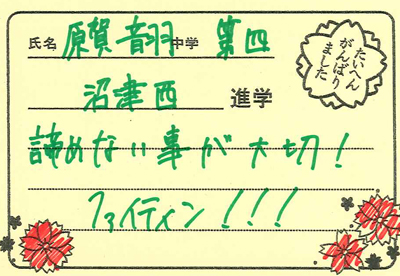 氏名 原賀 音羽 中学 第四
沼津西 進学
諦めない事が大切!
ファイティン!!!
たいへん
がんばり
ました